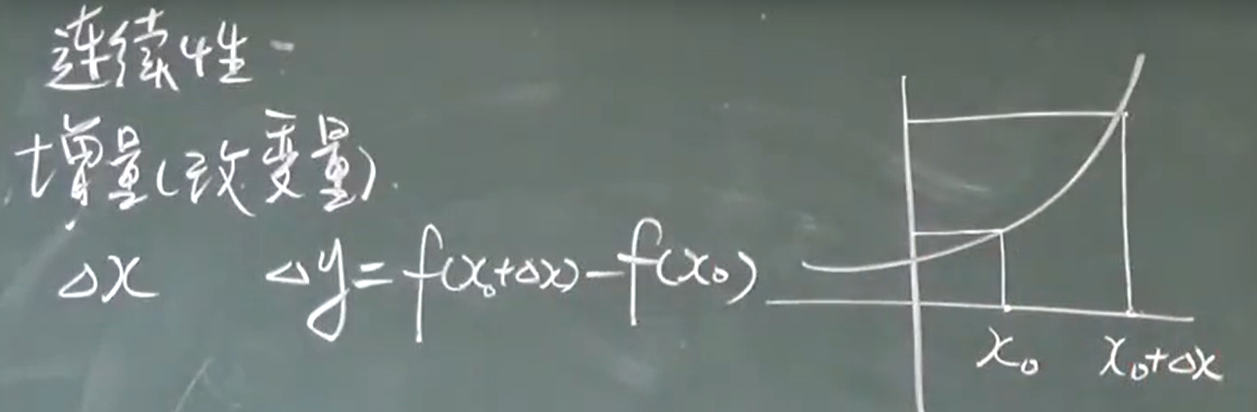 连续性
增量(改变量).
Δx Δy=f(x₀+Δx)-f(x₀)
x₀ x₀+Δx